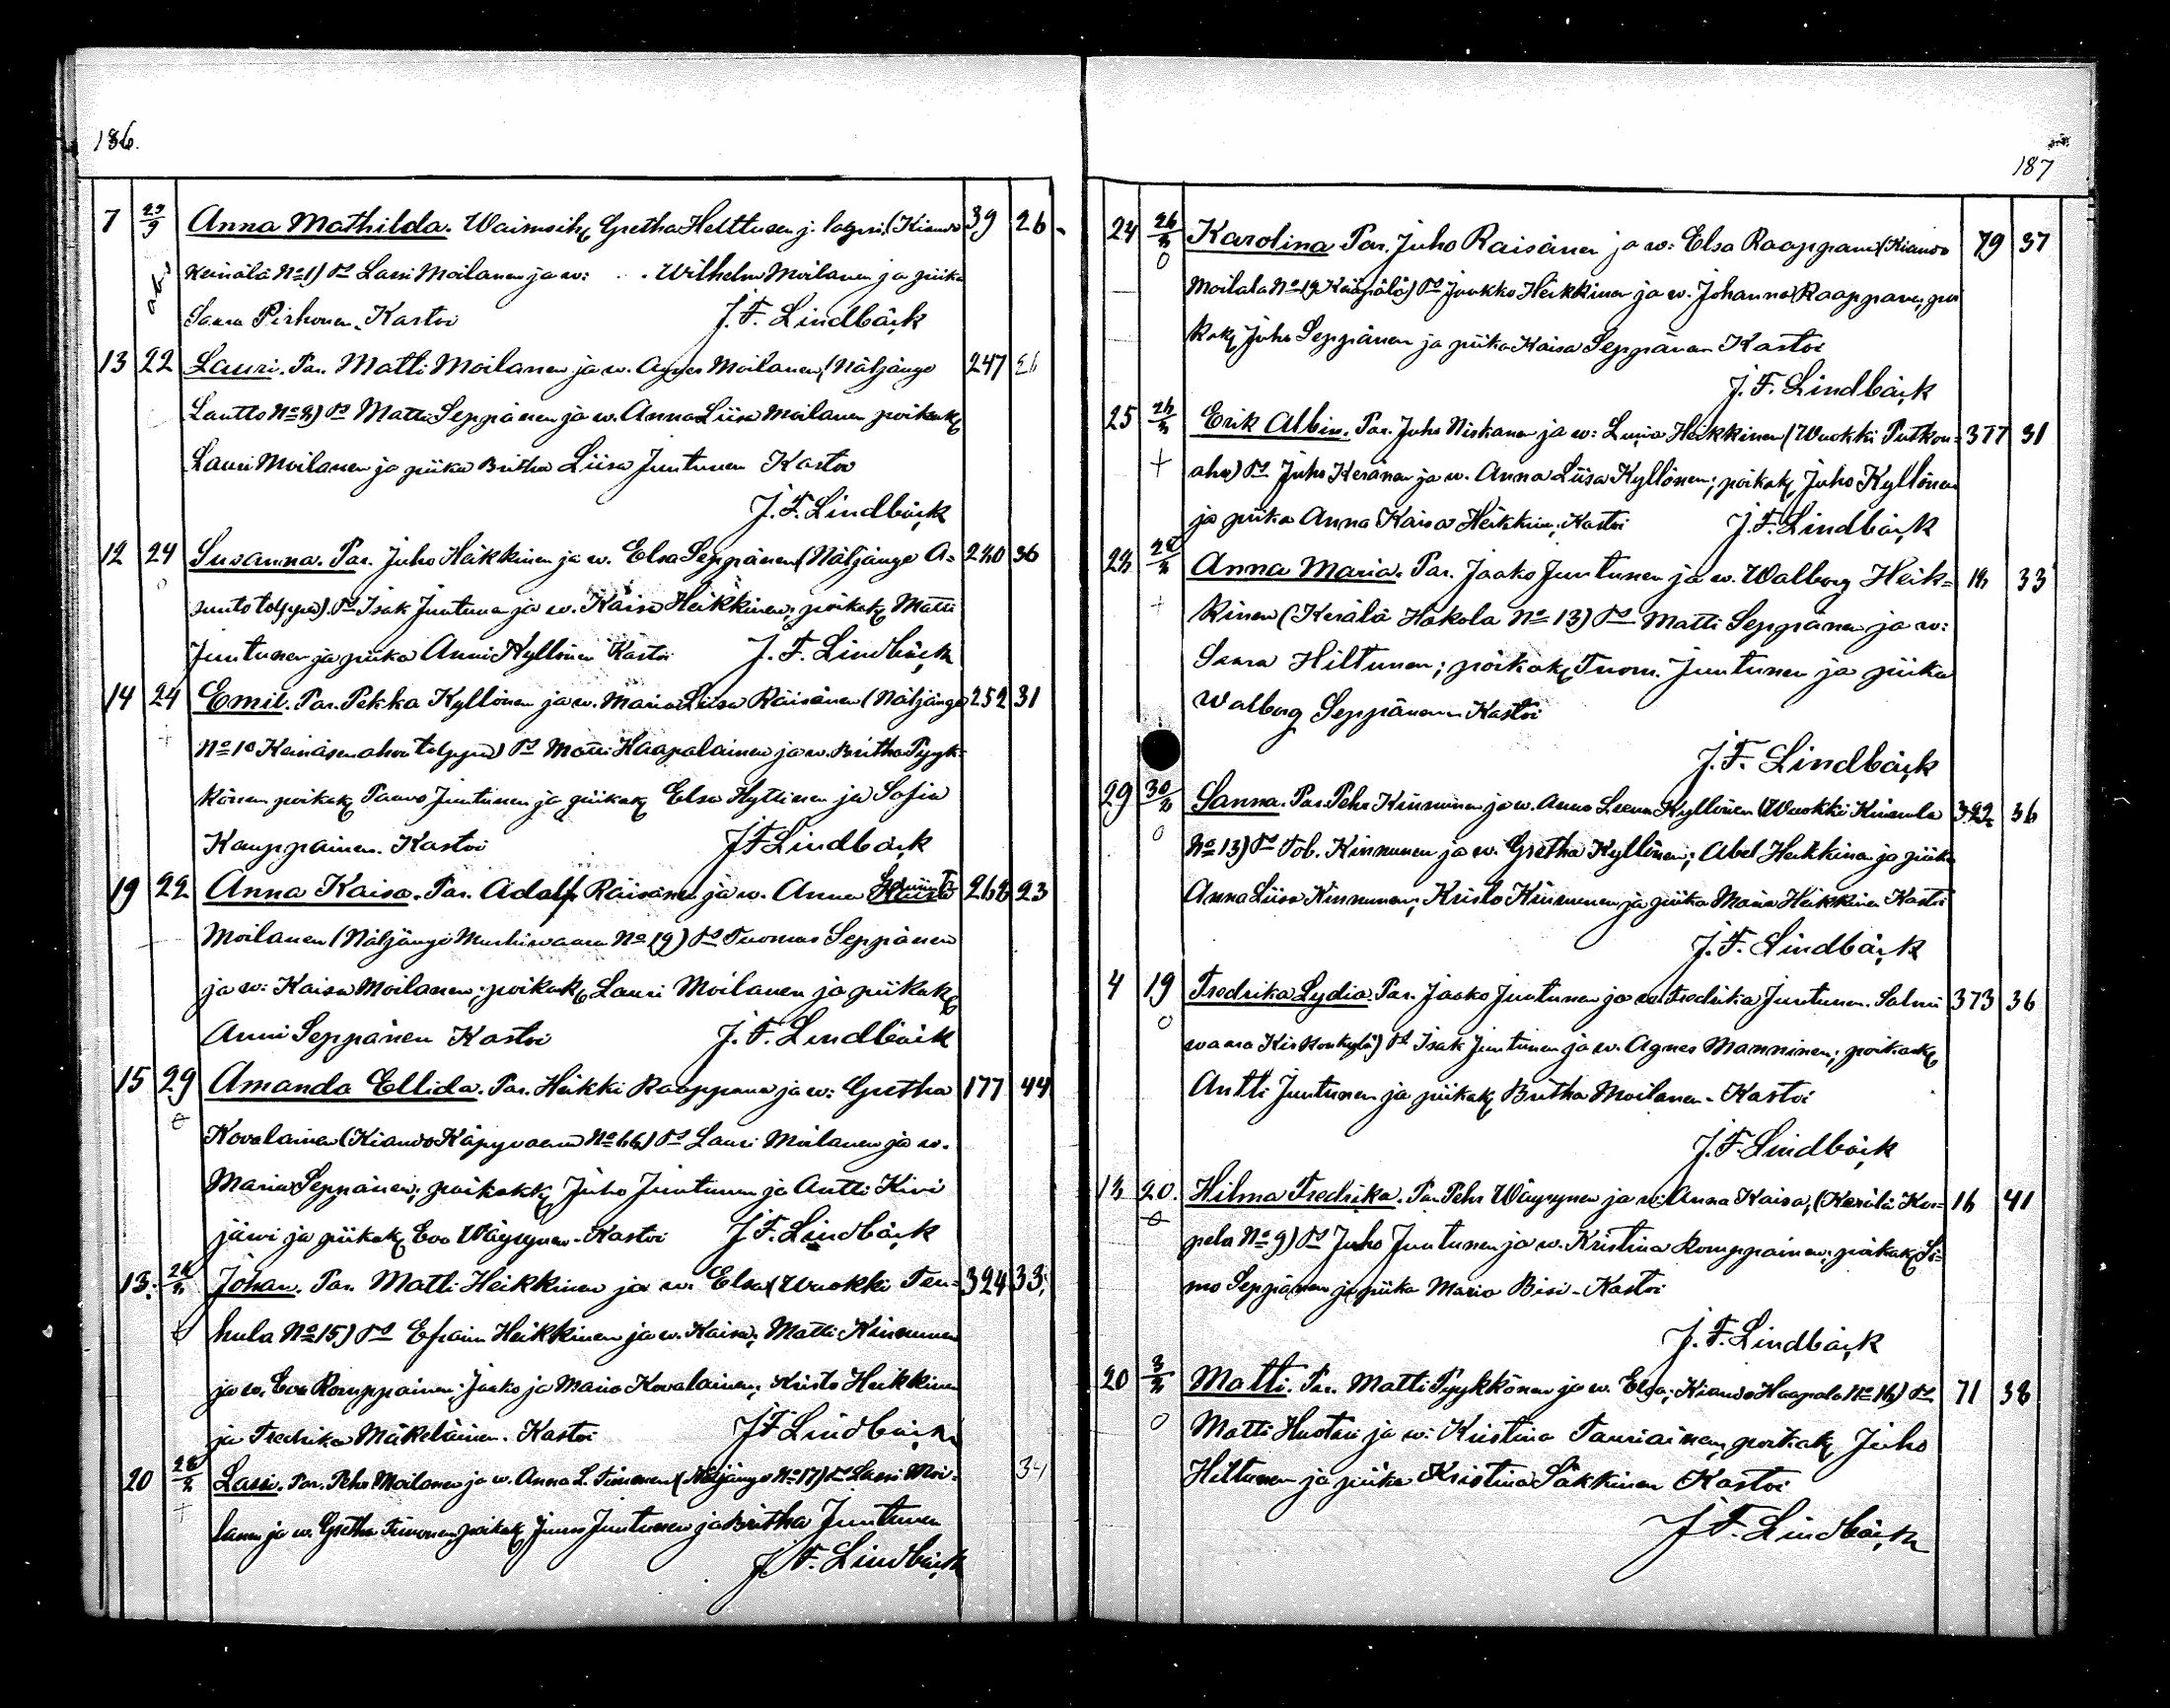 186.
7 29/9 Anna Mathilda. Waimoih Gretha Helttunen j. (Kianto 39 26
Keinälä No 1) Lassi Moilanen ja w: . . Wilhelm Moilanen ja piika
Saara Pirhonen. Kastoi J. F. Lindbäck
13 22 Lauri. Par. Matti Moilanen ja w. Agnes Moilanen, (Näljängo 247 26
Lautto No 8) Matti Seppänen ja w. Anna Liisa Moilanen poikank
Lauri Moilanen ja piika Britha Liisa Juntunen Kastoi
J. F. Lindbäck
12 24 Susanna. Par. Juho Heikkinen ja w. Elsa Seppänen (Näljängo A= 240 36
sunto ) Isak Juntunen ja w. Kaisa Heikkinen; poikak Matti
Juntunen ja piika Anni Kyllönen Kastoi J. F. Lindbäck
14 24 Emil. Par. Pekka Kyllönen ja w. Maria Liisa Räisänen (Näljängo 252 31
No 10 Keinäsenaho ) Matti Haapalainen ja w. Britha Pyyk=
könen poikak Paavo Juntunen ja piikak Elsa Hyttinen ja Sofia
Kauppainen. Kastoi J F Lindbäck
19 22 Anna Kaisa. Par. Adolf Räisänen ja w. Anna 262 23
Moilanen (Näljängö Mustiwaara No 19) Tuomas Seppänen
ja w: Kaisa Moilanen; poikak Lauri Moilanen ja piikak
Anni Seppänen Kastoi J. F. Lindbäck
15 29 Amanda Ellida. Par. Heikki Raappana ja w: Gretha 177 44
Kovalainen (Kianto Käpyvaara No 66) Lauri Moilanen ja w.
Maria Seppänen; poikakk Juho Juntunen ja Antti Kivi
järvi ja piikak Eva Wäyrynen - Kastoi J F. Lindbäck
13. Johan. Par. Matti Heikkinen ja w. Elsa (Wuokki Ten= 324 33.
hula No 15) Efraim Heikkinen ja w. Kaisa; Matti Kinnunen
ja w. Eva Romppainen; Jaako ja Maria Kovalainen; Kristo Heikkinen
ja Fredrika Mäkeläinen. Kastoi J F Lindbäck
20 Lassi. Par. Pehr Moilanen ja w. Anna L. Timonen (Näljängo No 17) Lassi Moi= 34
lanen ja w. Gretha Timonen poikak Juntunen ja Britha Juntunen
J. F. Lindbäck
187
24 Karolina Par. Juho Räisänen ja w: Elsa Raappana (Kianto 79 37
Moilala No 19 Käpälä) Jaakko Heikkinen ja w. Johanna Raappana, poi
kak Juho Seppänen ja piika Kaisa Seppänen Kastoi
J. F. Lindbäck
25 Erik Albin. Par. Juho Niskanen ja w: Heikkinen (Wuokki Putkon= 377 31
aho) Juho Keränen ja w. Anna Liisa Kyllönen; poikak Juho Kyllönen
ja piika Anna Kaisa Heikkinen; Kastoi J. F. Lindbäck
Anna Maria. Par. Jaako Juntunen ja w. Walborg Heik= 33
kinen (Kerälä Hakola No 13) Matti Seppänen ja w:
Saara Hiltunen; poikak Tuom. Juntunen ja piika
Walborg Seppänen Kastoi
J. F. Lindbäck
29 Sanna. Par. Pehr Kinnunen ja w. Anna Leena Kyllönen (Wuokki 322 36
No 13) Tob. Kinnunen ja w. Gretha Kyllönen; Abel Heikkinen ja piika
Anna Liisa Kinnunen; Kristo Kinnunen ja piika Maria Heikkinen Kastoi
J. F. Lindbäck
4 19 Fredrika Lydia. Par. Jaako Juntunen ja w. Fredrika Juntunen. Salmi 373 36
waara Kirkonkylä) Isak Juntunen ja w. Agnes Manninen; poikak
Antti Juntunen ja piikak Britha Moilanen - Kastoi
J. F. Lindbäck
13 20. Hilma Fredrika. Par. Pehr Wäyrynen ja w: Anna Kaisa, (Kerälä Kor= 16 41
pela No 9) Juho Juntunen ja w. Kristina Romppainen; poikak Si=
mo Seppänen ja piika Maria Bisi - Kastoi
J. F. Lindbäck
20 Matti. Par. Matti Pyykkönen ja w. Elsa; Kianto Haapala No 16) 71 38
Matti Huotari ja w: Kristina Tauriainen, poikak Juho
Hiltunen ja piika Kristina Säkkinen Kastoi
J F. Lindbäck